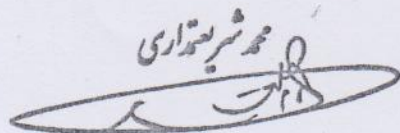 محمد شریعتمداری